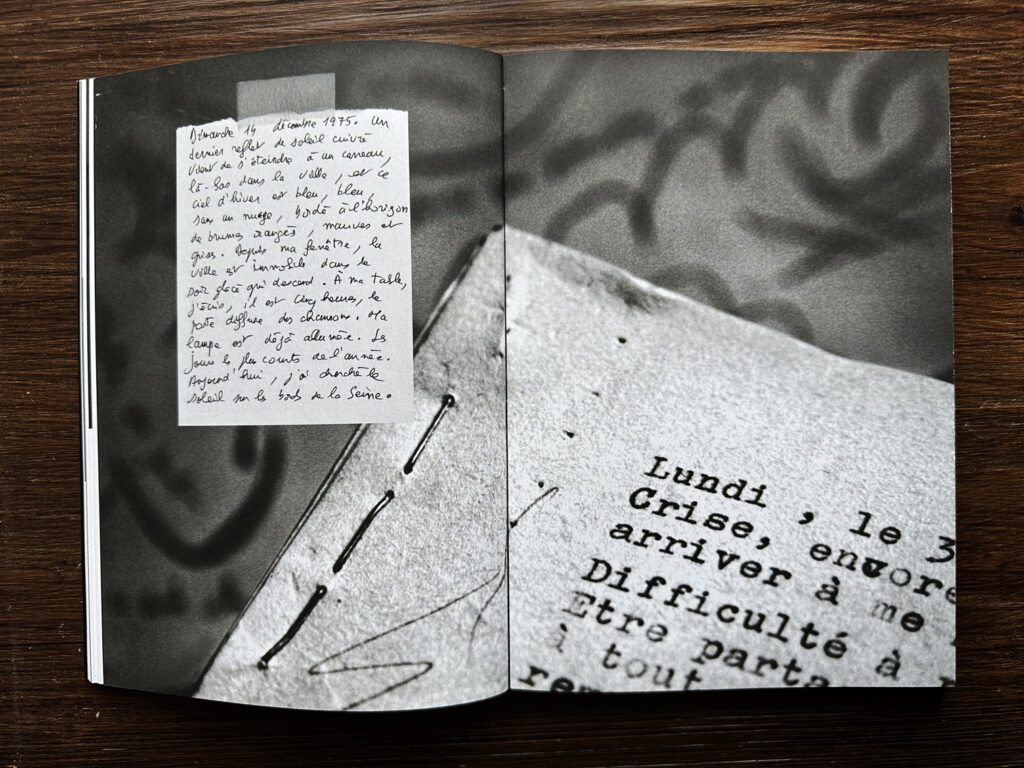 Dimanche 14 décembre 1975. Un
dernier reflet de soleil cuivré
vient de s'éteindre à un carreau,
là-bas dans la ville, et ce
ciel d'hiver est bleu, bleu,
sans un nuage, bordé à l'horizon
de brumes orangés, mauves et
grises. Depuis ma fenêtre, la
ville est immobile dans le
soir glacé qui descend. À ma table,
j'écris, il est cinq heures, le
poste diffuse des chansons. Ma
lampe est déjà allumée. Les
jours les plus courts de l'année.
Aujourd'hui, j'ai cherché le
soleil sur les bords de la Seine.
Lundi , le 3
Crise, encore
arriver à me
Difficulté à
Etre parta
à tout